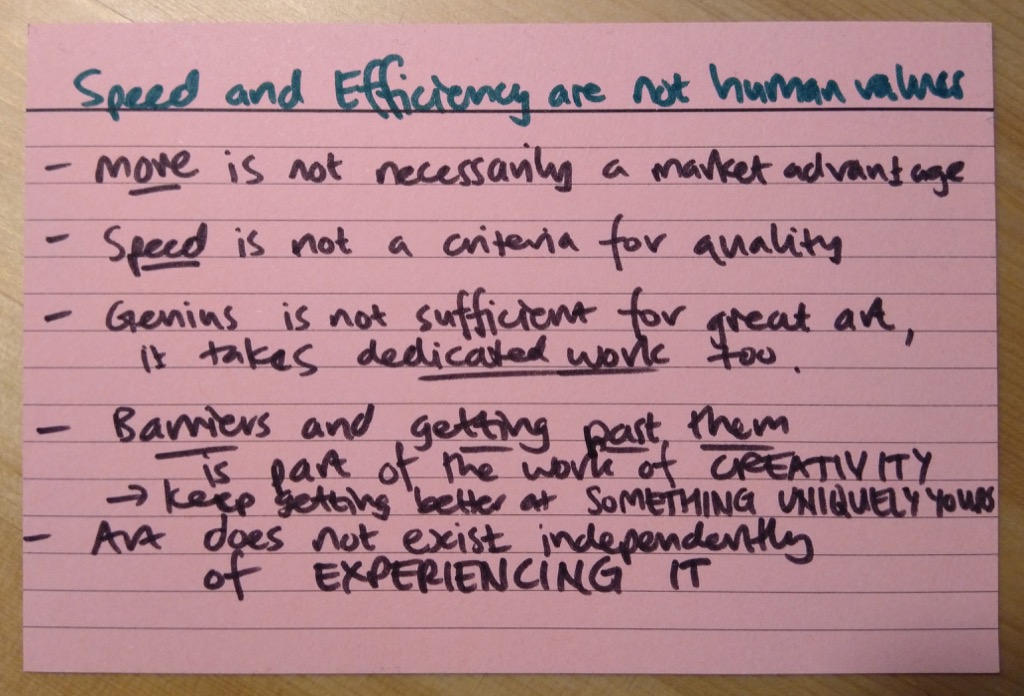 Speed and Efficiency are not human values
- more is not necessarily a market advantage
- Speed is not a criteria for quality
- Genius is not sufficient for great art,
it takes dedicated work too.
- Barriers and getting past them
is part of the work of CREATIVITY
→ keep getting better at SOMETHING UNIQUELY YOURS
- Art does not exist independently
of EXPERIENCING IT